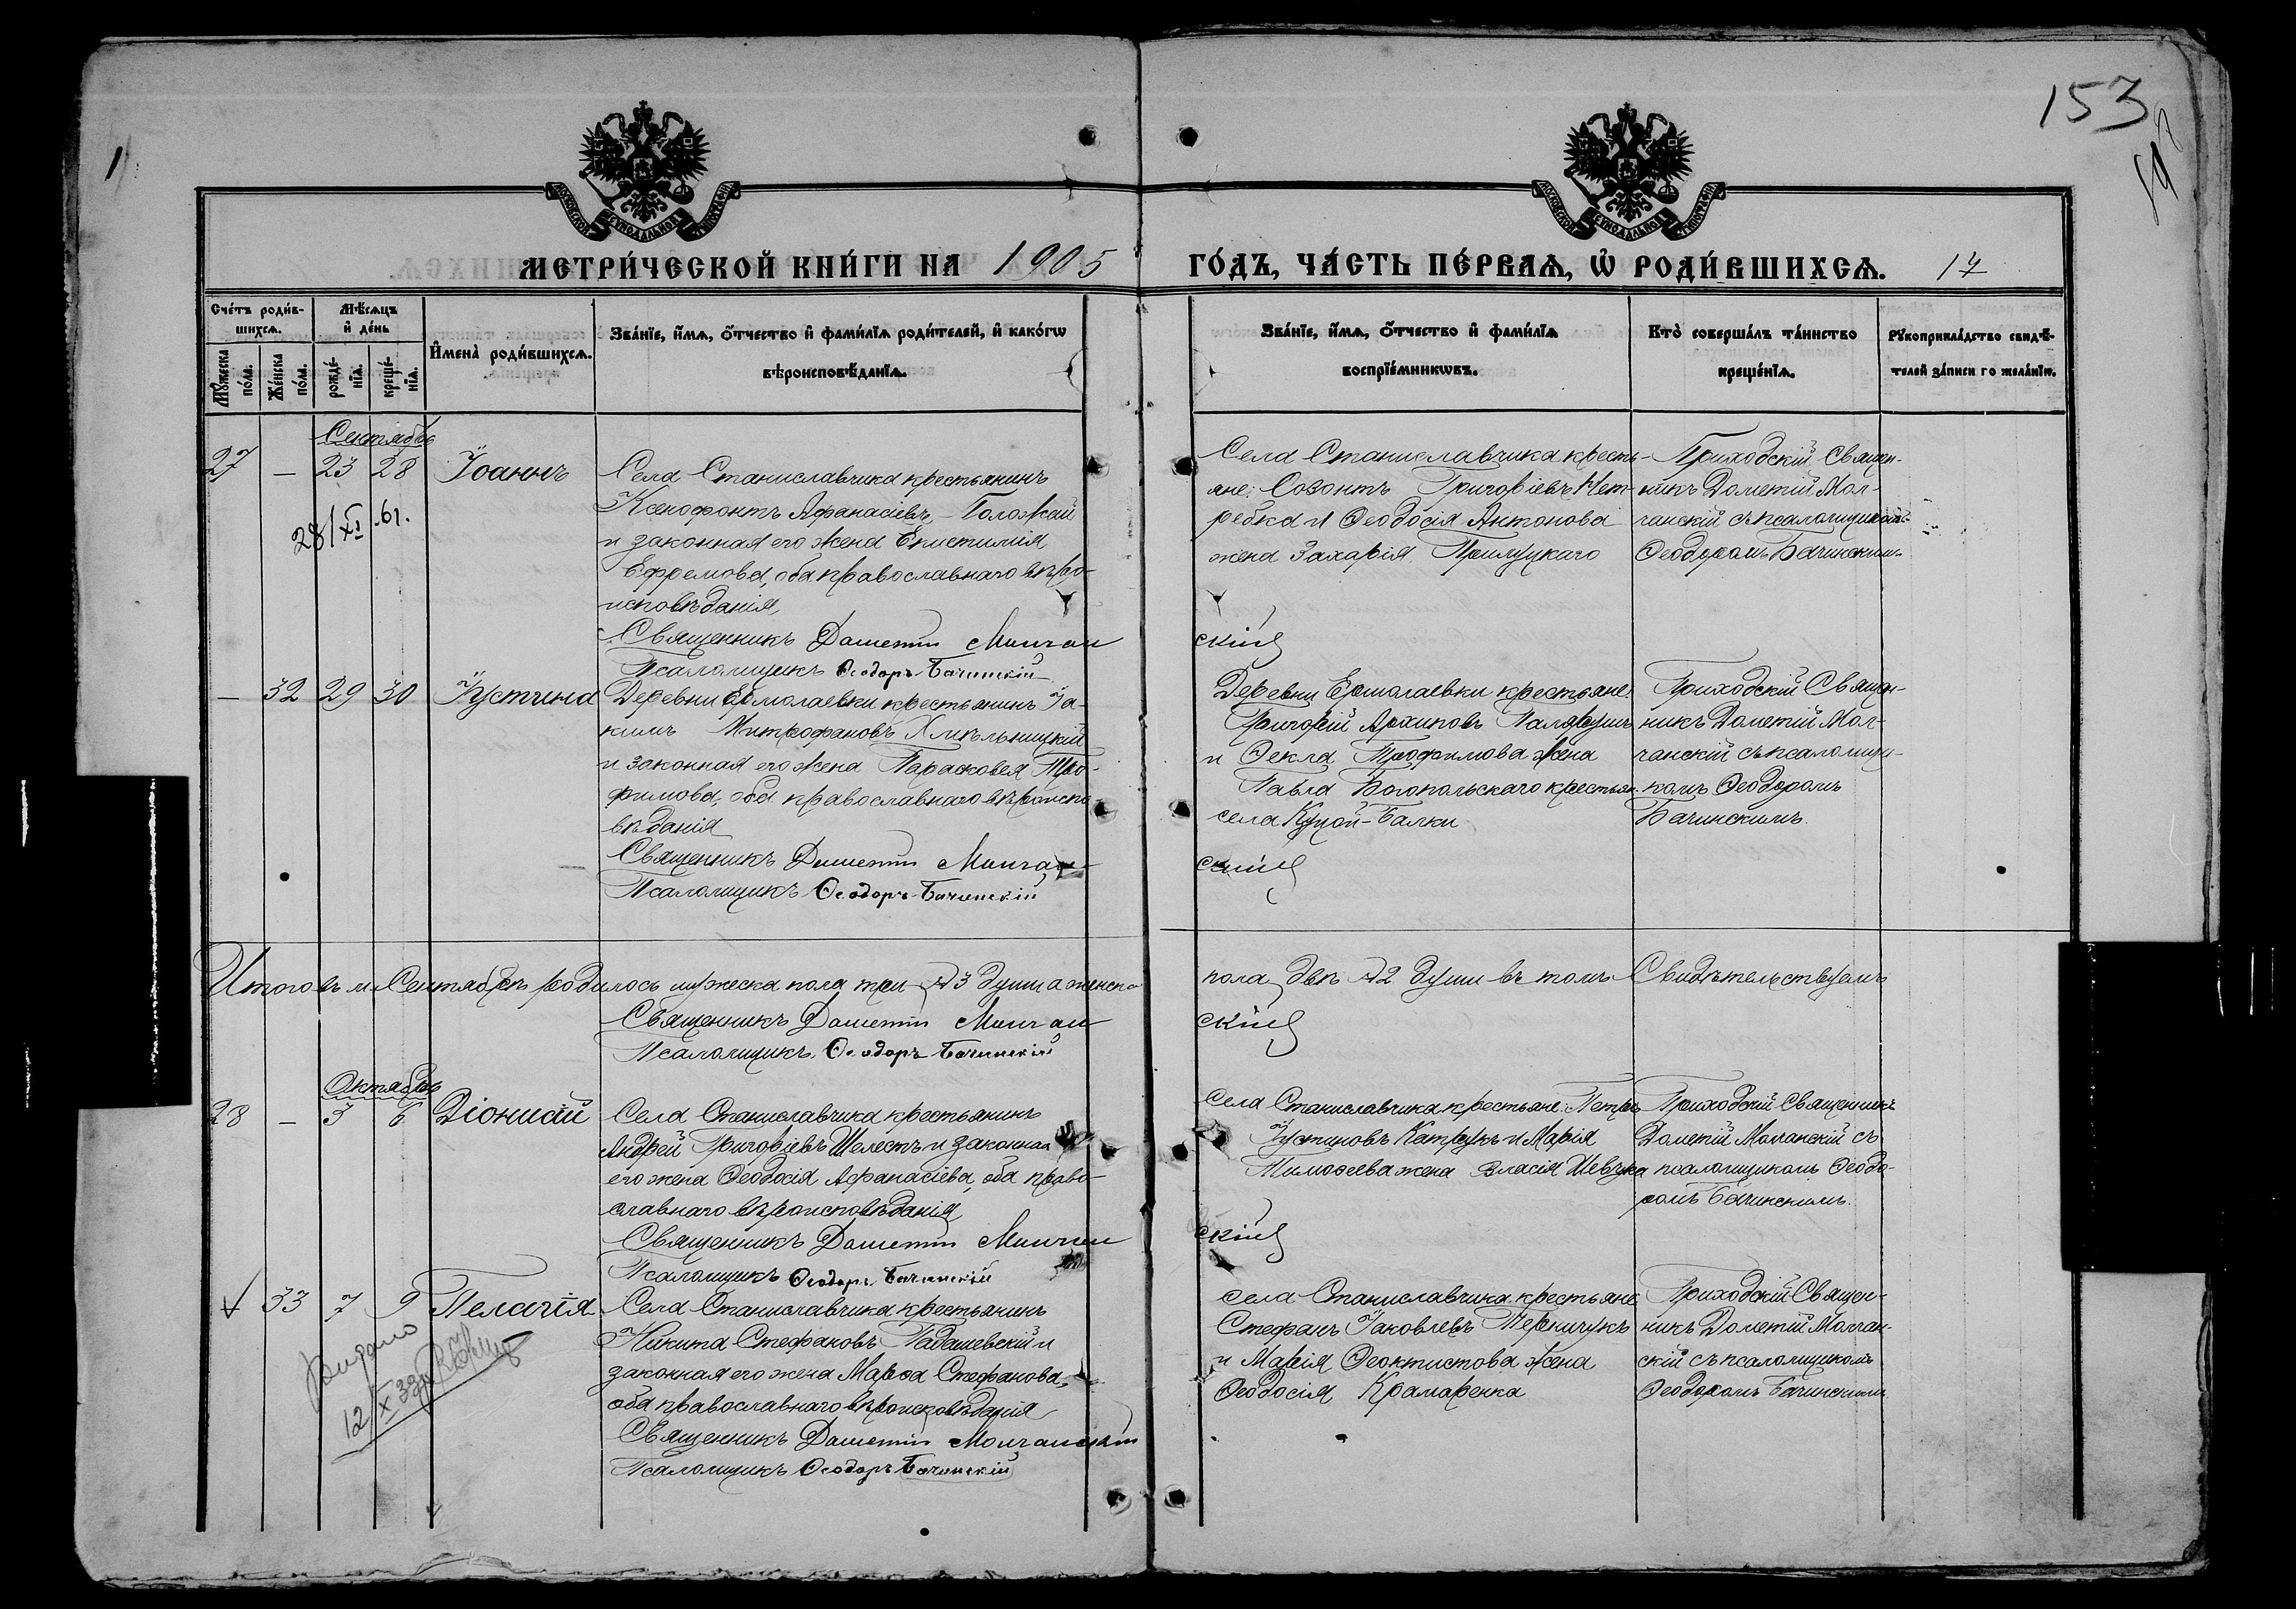 153
МОСКОВСКОЙ СѴНОДАЛЬНОЙ ТИПОГРАФІИ
МОСКОВСКОЙ СѴНОДАЛЬНОЙ ТИПОГРАФІИ
МЕТРИ́ЧЕСКОЙ КНИ́ГИ НА 1905 ГО́ДЪ, ЧА́СТЬ ПЕ́РВАѦ, Ѡ҆ РОДИ́ВШИХСѦ. 17
Сче́тъ роди́в-
шихсѧ.
Мꙋ́жеска по́ла.
Же́нска по́ла.
Мѣ́сѧцъ
и҆ де́нь
рожде́-
нїѧ.
креще́-
нїѧ.
И҆мена̀ роди́вшихсѧ.
Зва́нїе, и҆́мѧ, ѻ҆́тчество и҆ фами́лїѧ роди́телей, и҆ како́гѡ
вѣроисповѣ́данїѧ.
Зва́нїе, и҆́мѧ, ѻ҆́тчество и҆ фами́лїѧ
воспрїе́мникѡвъ.
Кто̀ соверша́лъ та́инство
креще́нїѧ.
Рꙋкоприкла́дство свидѣ́-
телей за́писи по жела́нїю.
Сентябрь
27 — 23 28 Іоаннъ
28/XI 61.
Села Станиславчика крестьянинъ
Ксенофонтъ Аѳанасіевъ Голожай
и законная его жена Епистимія
Ефремова, оба православнаго вѣро-
исповѣданія,
Священникъ Дометій Молчан
скій
Псаломщикъ Ѳеодоръ Бачинскій
Села Станиславчика кресть-
яне: Созонтъ Григоріевъ Нет-
ребка и Ѳеодосія Антонова
жена Захарія Прилуцкаго
Приходскій Священ-
никъ Дометій Мол-
чанскій съ псаломщикомъ
Ѳеодоромъ Бачинскимъ
— 32 29 30 Іустина
Деревни Ермолаевки крестьянинъ Іа-
кимъ Митрофановъ Хмѣльницкій
и законная его жена Парасковея Тро-
фимова, оба православнаго вѣроиспо-
вѣданія
Священникъ Дометій Молчан-
скій
Псаломщикъ Ѳеодоръ Бачинскій
Деревни Ермолаевки крестьяне:
Григорій Архиповъ
и Ѳекла Трофимова жена
Павла Богопольскаго крестьян.
села Куцой-Балки
Приходскій Священ-
никъ Дометій Мол-
чанскій съ псаломщи-
комъ Ѳеодоромъ
Бачинскимъ.
Итого въ м. Сентябрѣ родилось мужеска пола три 3 души а женска
пола двѣ 2 души въ томъ Свидѣтельствуемъ
Священникъ Дометій Молчан
скій
Псаломщикъ Ѳеодоръ Бачинскій
Октябрь
28 — 3 6 Діонисій
Села Станиславчика крестьянинъ
Андрей Григоріевъ Шелестъ и законная
его жена Ѳеодосія Аѳанасіева, оба право-
славнаго вѣроисповѣданія
Священникъ Дометій Молчан
скій
Псаломщикъ Ѳеодоръ Бачинскій
Села Станиславчика крестьяне: Петръ
Іустиновъ Катрукъ и Марія
Тимоѳеева жена Власія Шевчука
Приходскій Священникъ
Дометій Молчанскій съ
псаломщикомъ Ѳеодо-
ромъ Бачинскимъ.
33 7 9 Пелагія
Видано
12/X 33р
Села Станиславчика крестьянинъ
Никита Стефановъ Гадашевскій и
законная его жена Марѳа Стефанова,
оба православнаго вѣроисповѣданія
Священникъ Дометій Молчанскій
Псаломщикъ Ѳеодоръ Бачинскій
села Станиславчика крестьяне
Стефанъ Іаковлевъ Терничукъ
и Марія Ѳеоктистова жена
Ѳеодосія Крамаренка
Приходскій Священ-
никъ Дометій Молчан-
скій съ псаломщикомъ
Ѳеодоромъ Бачинскимъ